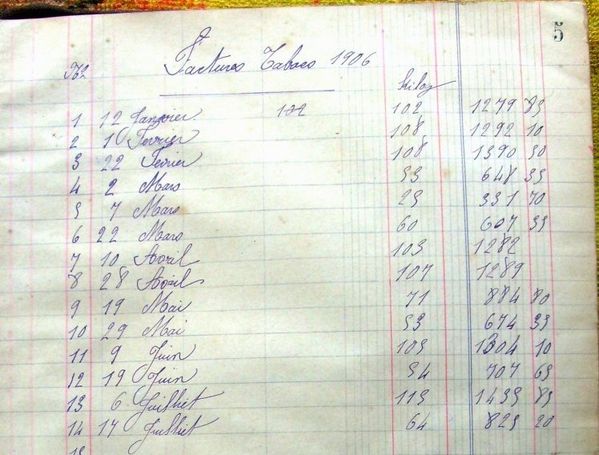 5
Factures Tabacs 1906
No kilos
1 12 Janvier 102 102 1279 85
2 10 Fevrier 108 1292 10
3 22 Fevrier 108 1390 50
4 2 Mars 53 648 35
5 7 Mars 25 331 70
6 22 Mars 60 607 35
7 10 Avril 103 1282
8 28 Avril 107 1289
9 19 Mai 71 884 80
10 29 Mai 53 674 35
11 9 Juin 105 1304 10
12 19 Juin 54 707 65
13 6 Juillet 115 1435 85
14 17 Juillet 64 825 20